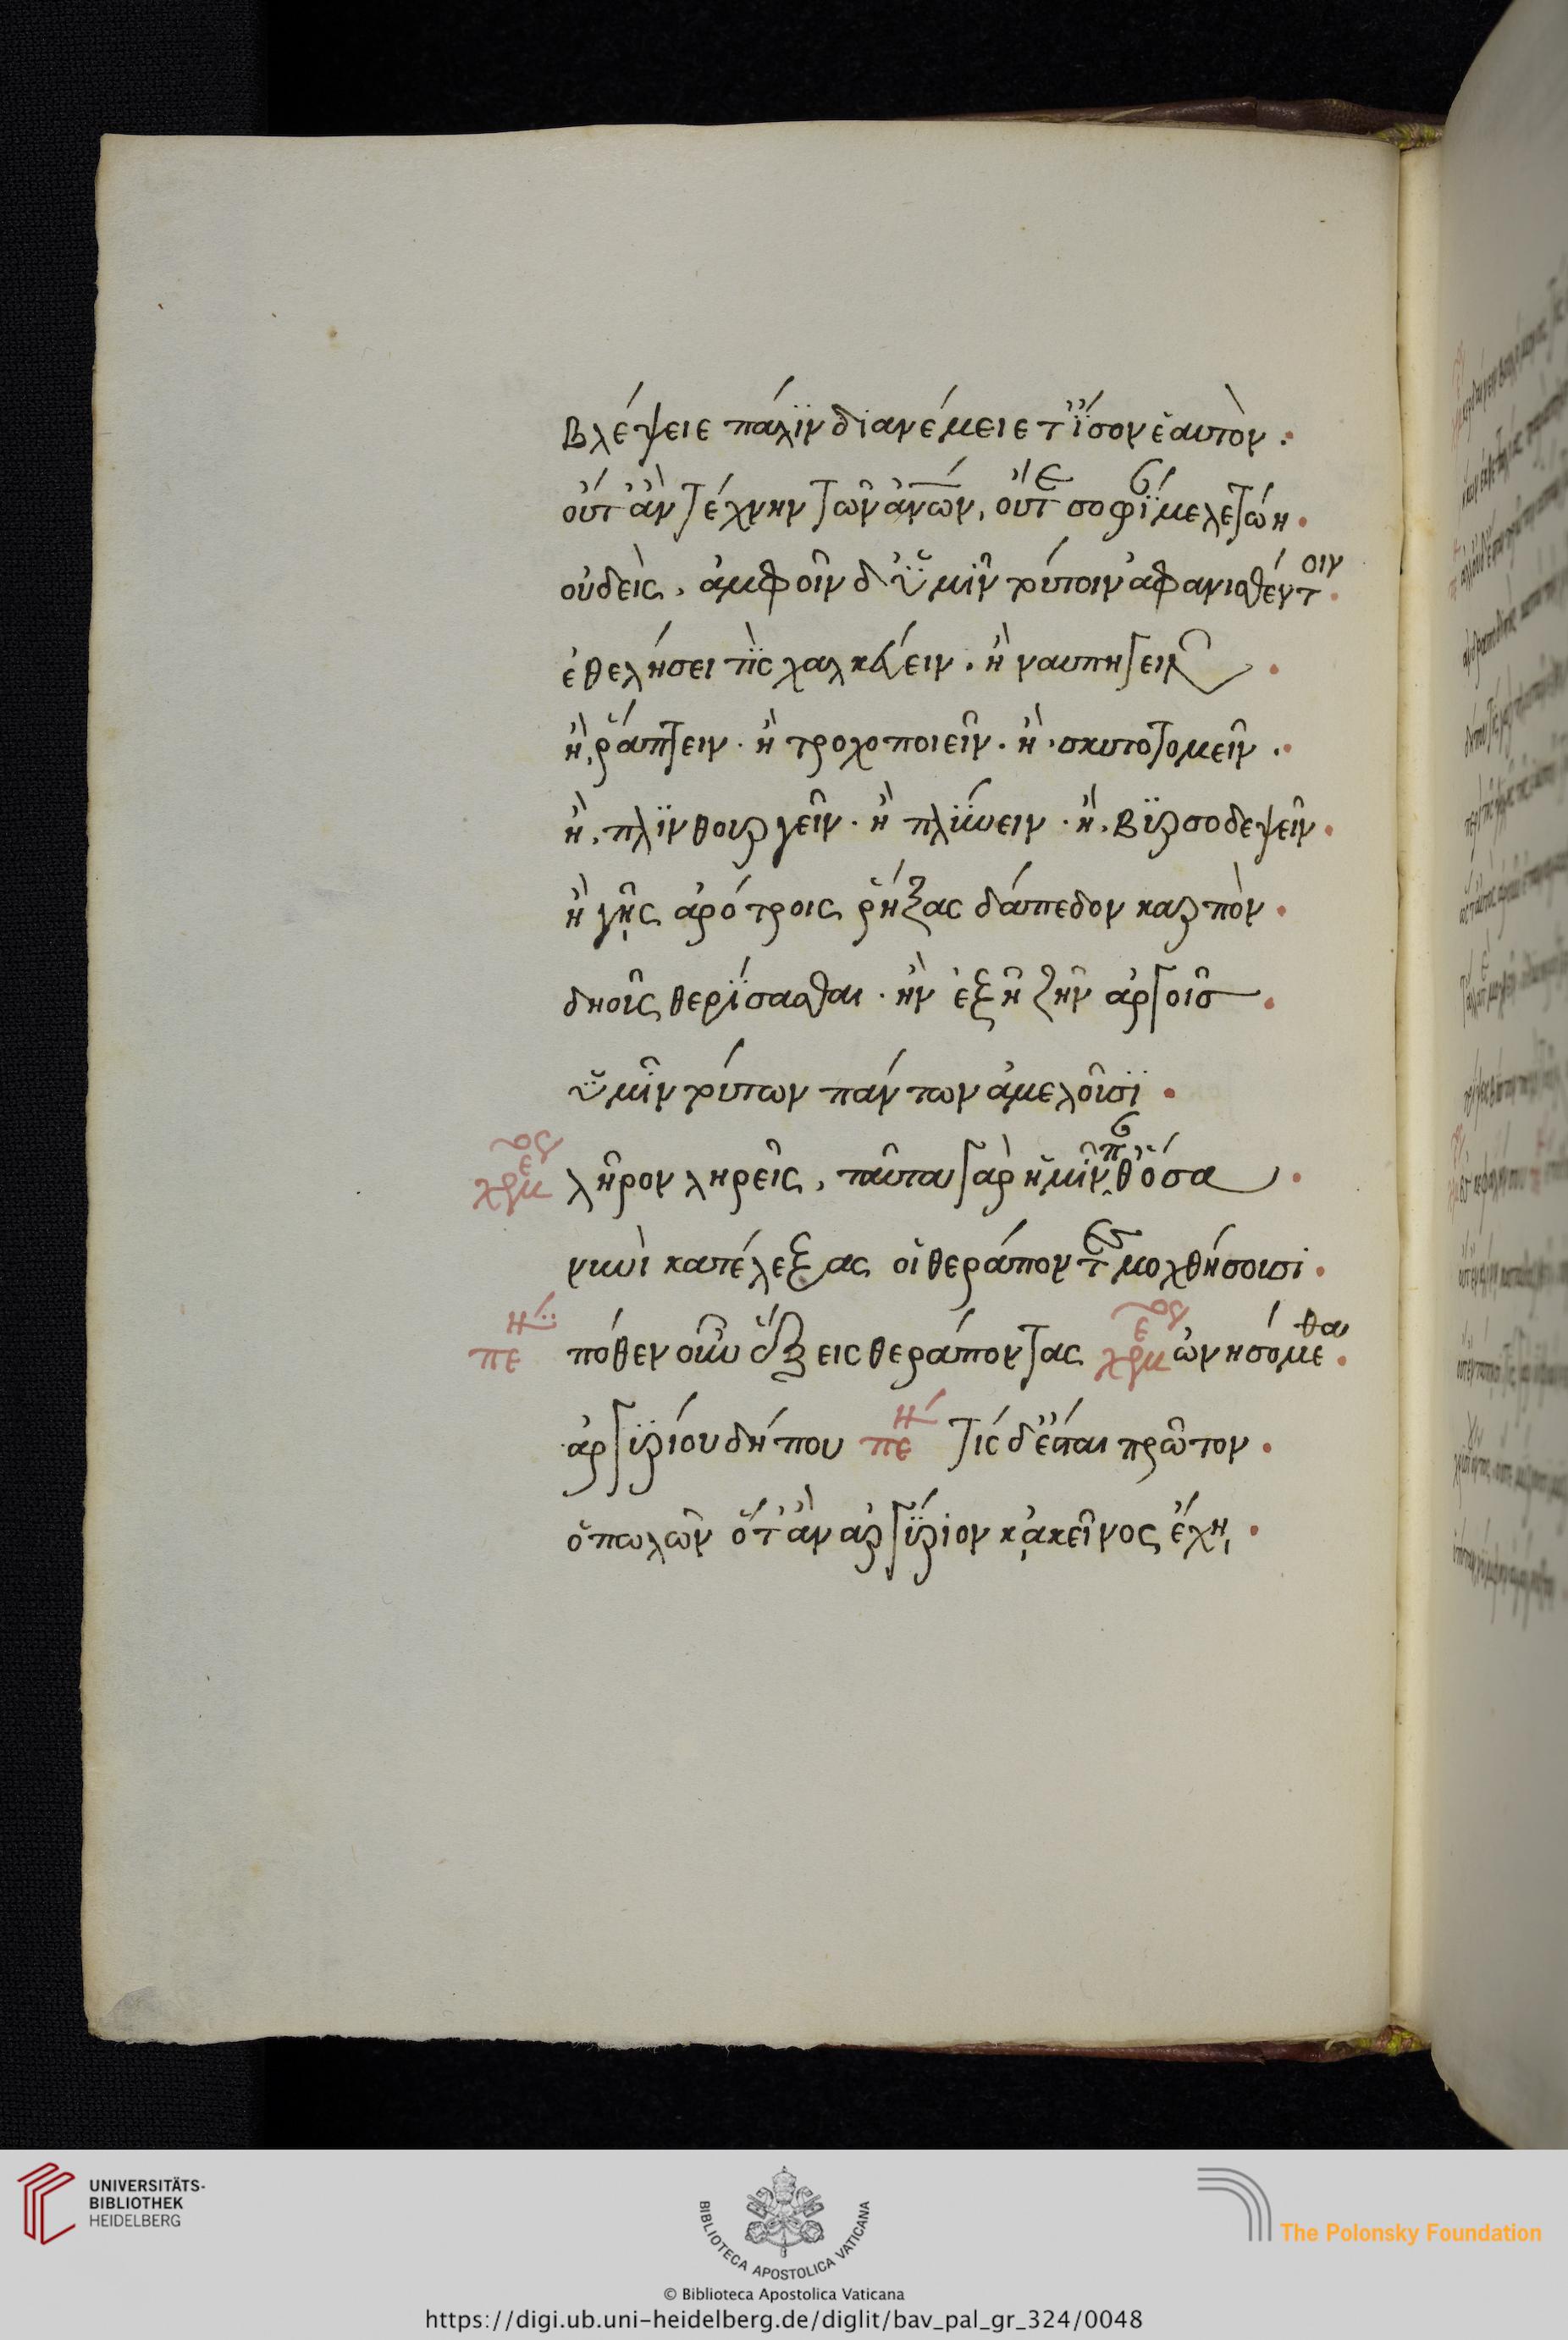 βλέψειε πάλϊν διανέμειε τ ἴσον ἑαυτὸν :
οὔτ ἂν τέχνην τῶν ἀν̅ω̅ν, οὔτε σοφΐ μελετώη .
οὐδεὶς, ἀμφοῖν δ ὑ̈μῖν τούτοιν ἀφανισθέντοιν .
ἐθελήσει τὶς χαλκεύειν . ἢ ναυπηγεῖν .
ἢ ῥάπτειν . ἢ τροχοποιεῖν . ἢ σκυτοτομεῖν .
ἢ πλϊνθουργεῖν . ἢ πλύνειν . ἢ βϋρσοδεψεῖν .
ἢ γῆς ἀρότροις ῥήξας δάπεδον καρπὸν .
δηοῖς θερΐσασθαι . ἢν ἐξῆ ζῆν ἀργοῖς .
ὑ̈μῖν τούτων πάντων ἀμελοῦσϊ .
χρεμ λῆρον ληρεῖς, ταῦτα γὰρ ἡμῖν πθ ὅσα .
νυνὶ κατέλεξας οἱ θεράποντες μοχθήσουσι .
πεν πόθεν οὖν ἕξεις θεράποντας χρεμ ὠνησόμεθα .
ἀργϋρίου δήπου πεν τίς δ ἔσται πρῶτον .
ὁ πωλῶν ὅτ ἂν ἀργύριον κἀκεῖνος ἔχῃ .
UNIVERSITÄTS-
BIBLIOTHEK
HEIDELBERG
BIBLIOTECA APOSTOLICA VATICANA
The Polonsky Foundation
© Biblioteca Apostolica Vaticana
https://digi.ub.uni-heidelberg.de/diglit/bav_pal_gr_324/0048